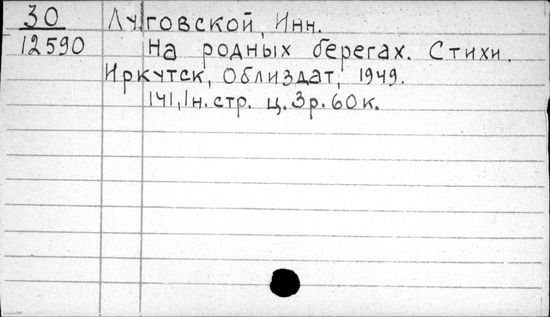 30 Луговской, Инн.
12590 На родных берегах. Стихи.
Иркутск, Облиздат, 1949.
141, 1н. стр. ц. 3р. 60к.